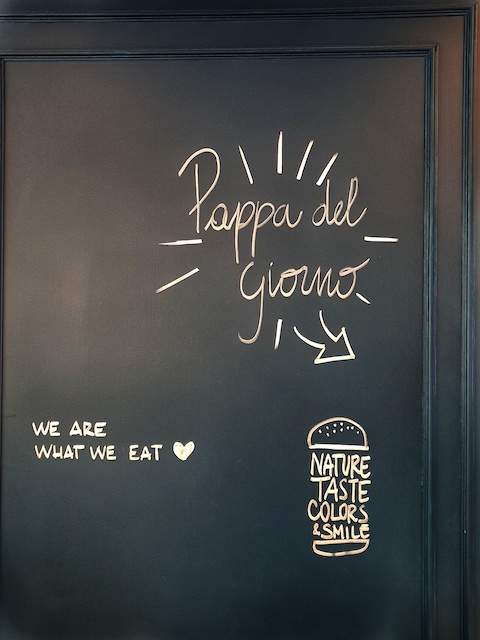 Pappa del
giorno
WE ARE
WHAT WE EAT
NATURE
TASTE
COLORS
& SMILE